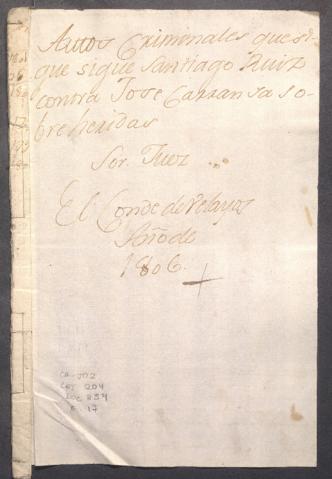 Autos Criminales que si-
gue sigue Santiago Ruiz
contra Jose Carransa so-
bre heridas
Sor. Juez
El Conde de Velayos
Año de
1806.
CA-JO2
LEG 204
DOC 254
F. 17